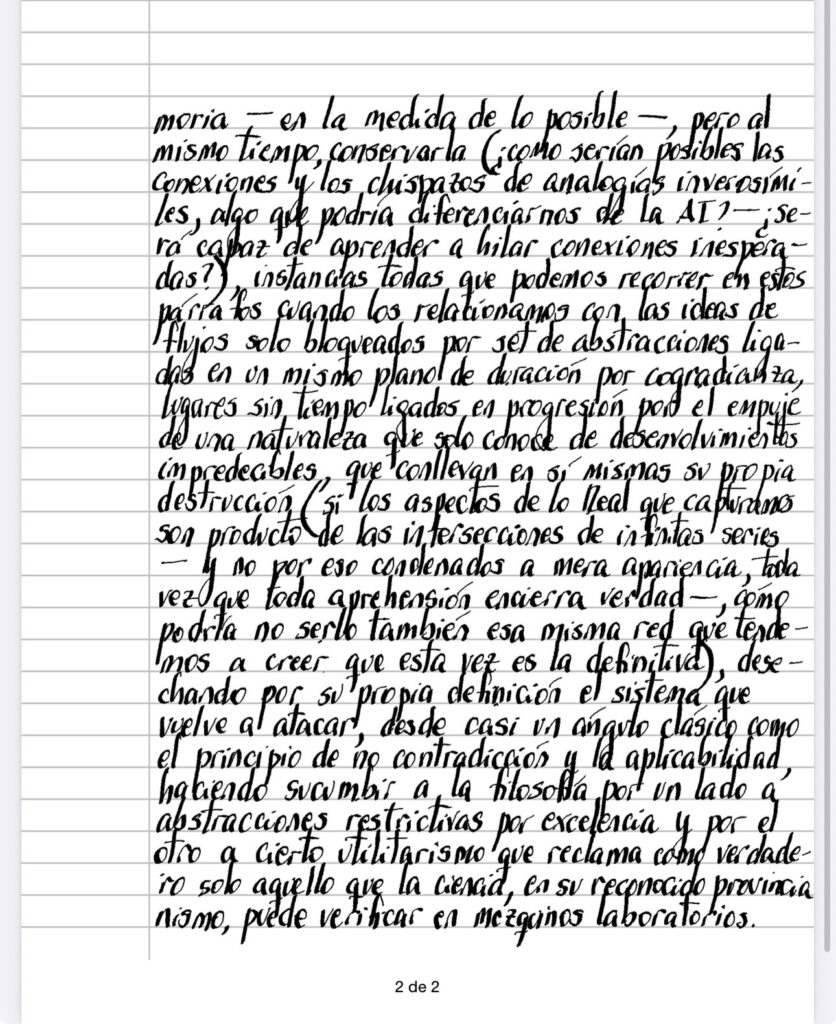 moria — en la medida de lo posible —, pero al
mismo tiempo, conservarla (¿como serían posibles las
conexiones y los chispazos de analogías inverosími-
les, algo que podría diferenciarnos de la AI? — ¿se-
rá capaz de aprender a hilar conexiones inespera-
das?), instancias todas que podemos recorrer en estos
párrafos cuando los relacionamos con las ideas de
flujos solo bloqueados por set de abstracciones liga-
das en un mismo plano de duración por cogradianza,
lugares sin tiempo ligados en progresión por el empuje
de una naturaleza que solo conoce de desenvolvimientos
impredecibles, que conllevan en sí mismas su propia
destrucción (si los aspectos de lo Real que capturamos
son producto de las intersecciones de infinitas series
— y no por eso condenados a mera apariencia, toda
vez que toda aprehensión encierra verdad —, cómo
podría no serlo también esa misma red que tende-
mos a creer que esta vez es la definitiva), dese-
chando por su propia definición el sistema que
vuelve a atacar, desde casi un ángulo clásico como
el principio de no contradicción y la aplicabilidad,
haciendo sucumbir a la filosofía por un lado a
abstracciones restrictivas por excelencia y por el
otro a cierto utilitarismo que reclama como verdade-
ro solo aquello que la ciencia, en su reconocido provincia
nismo, puede verificar en mezquinos laboratorios.
2 de 2